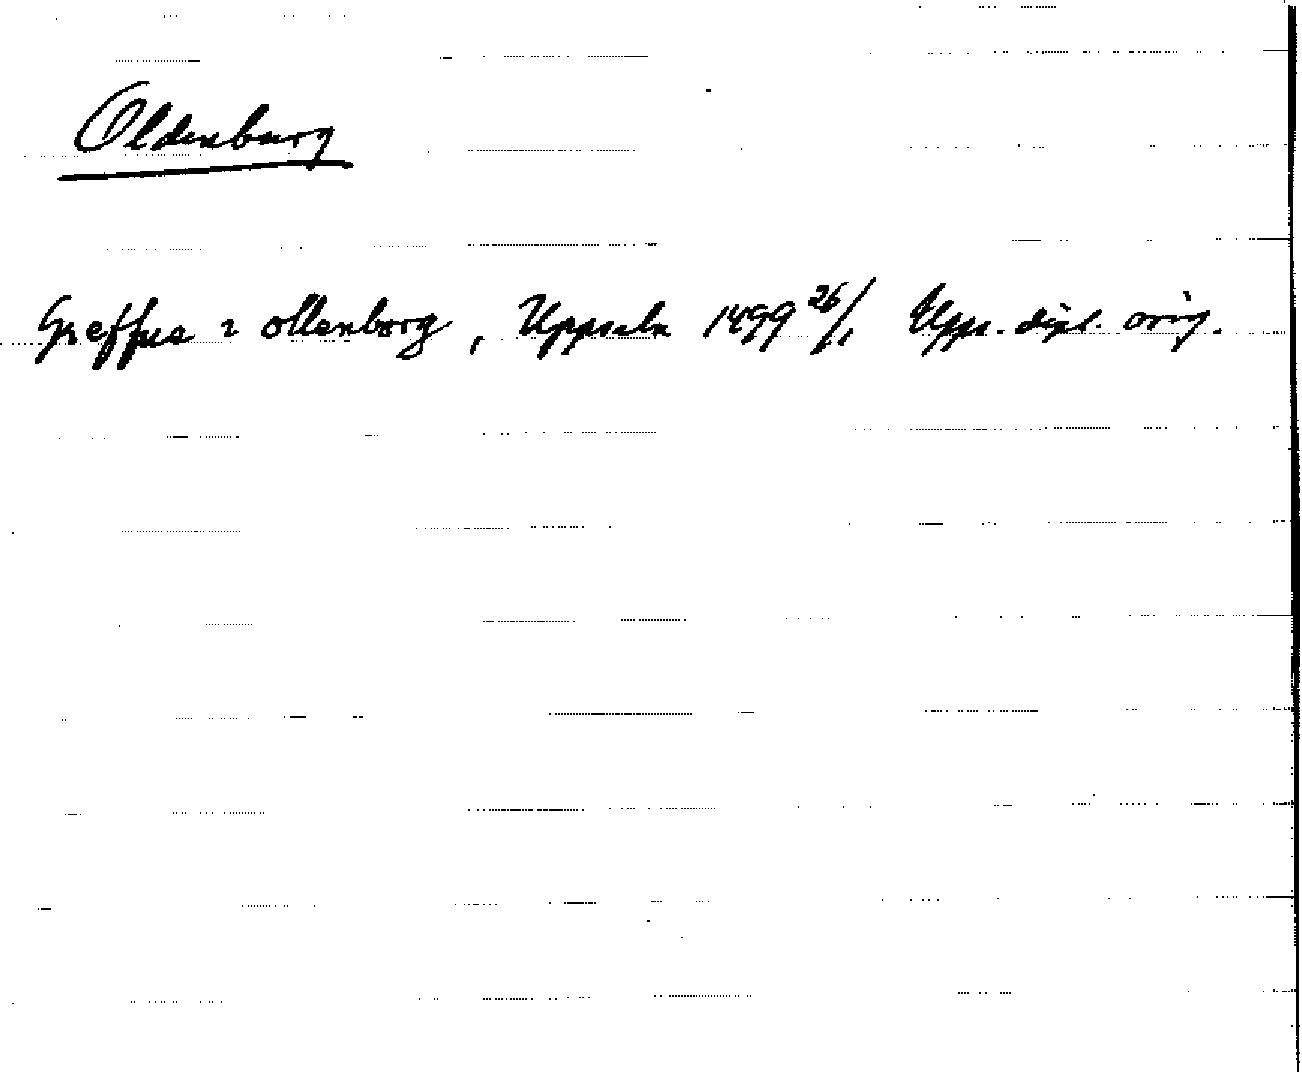 Oldenburg
Greffue i ollenborg, Uppsala 1499 26/1 Upps. dipl. orig.